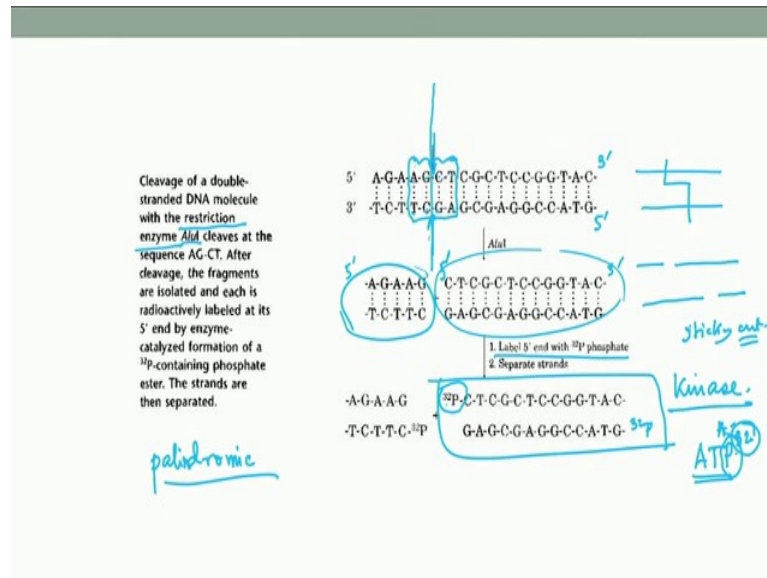 Cleavage of a double-
stranded DNA molecule
with the restriction
enzyme AluI cleaves at the
sequence AG·CT. After
cleavage, the fragments
are isolated and each is
radioactively labeled at its
5′ end by enzyme-
catalyzed formation of a
³²P-containing phosphate
ester. The strands are
then separated.
palindromic
3′
5′ A-G-A-A-G-C-T-C-G-C-T-C-C-G-G-T-A-C-
3′ -T-C-T-T-C-G-A-G-C-G-A-G-G-C-C-A-T-G-
5′
AluI
5′ 5′ 3′
-A-G-A-A-G C-T-C-G-C-T-C-C-G-G-T-A-C-
-T-C-T-T-C G-A-G-C-G-A-G-G-C-C-A-T-G-
sticky end
1. Label 5′ end with ³²P phosphate
2. Separate strands
Kinase.
-A-G-A-A-G ³²P-C-T-C-G-C-T-C-C-G-G-T-A-C-
-T-C-T-T-C-³²P G-A-G-C-G-A-G-G-C-C-A-T-G- 32p
ATP 32